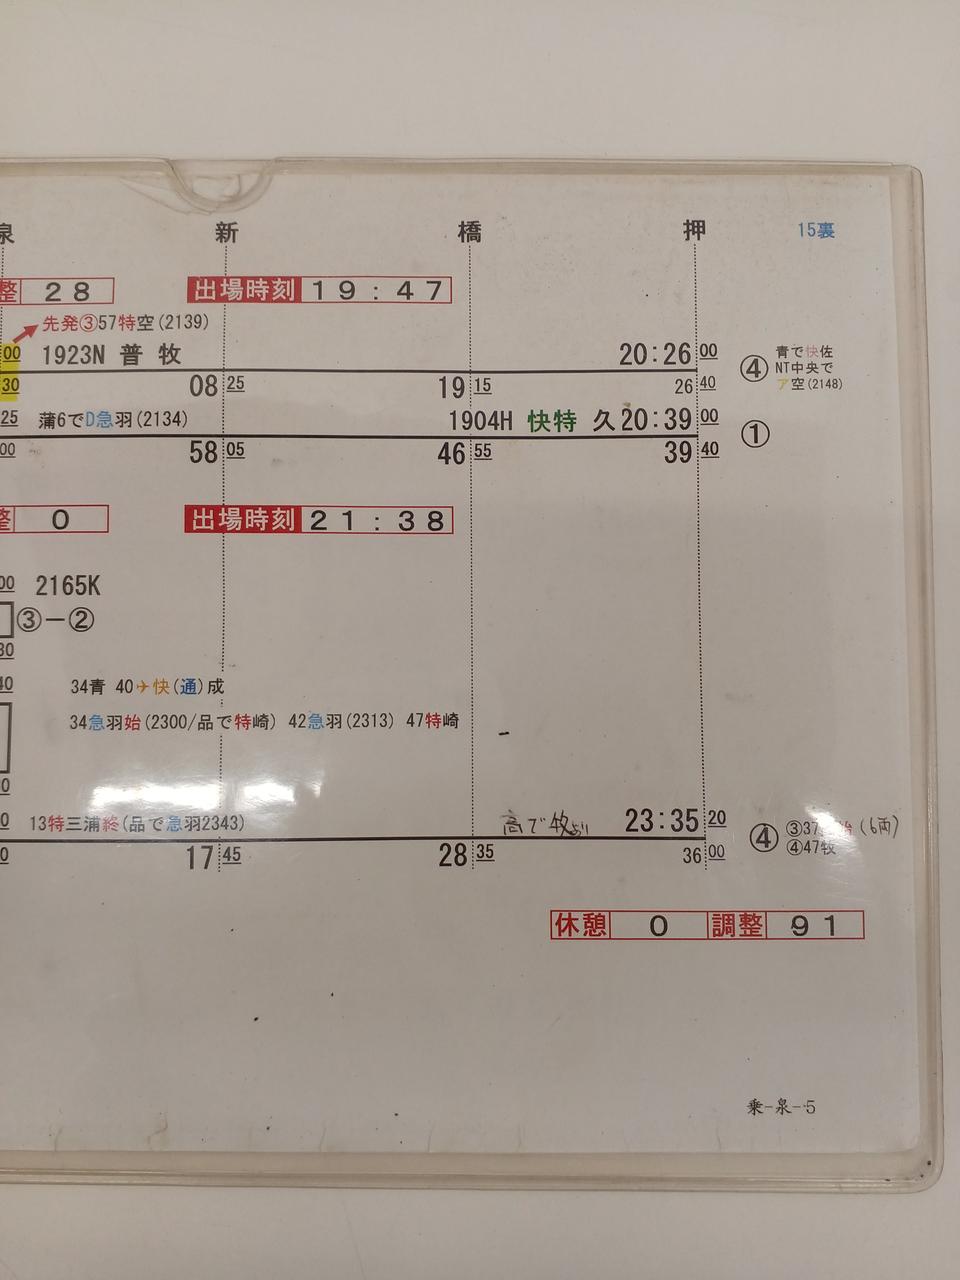 泉 新 橋 押 15裏
整 28 出場時刻 19:47
先発③57特空(2139)
00 1923N 普 牧 20:26 00 ④ 青で快佐
NT中央で
30 08 25 19 15 26 40 ア空(2148)
25 蒲6でD急羽(2134) 1904H 快特 久 20:39 00 ①
00 58 05 46 55 39 40
整 0 出場時刻 21:38
00 2165K
③－②
30
40 34青 40✈快(通)成
34急羽始(2300/品で特崎) 42急羽(2313) 47特崎
0
0 13特三浦終(品で急羽2343) 高で牧より 23:35 20 ④ ③37 始 (6両)
④47牧
0 17 45 28 35 36 00
休憩 0 調整 91
乗-泉-5